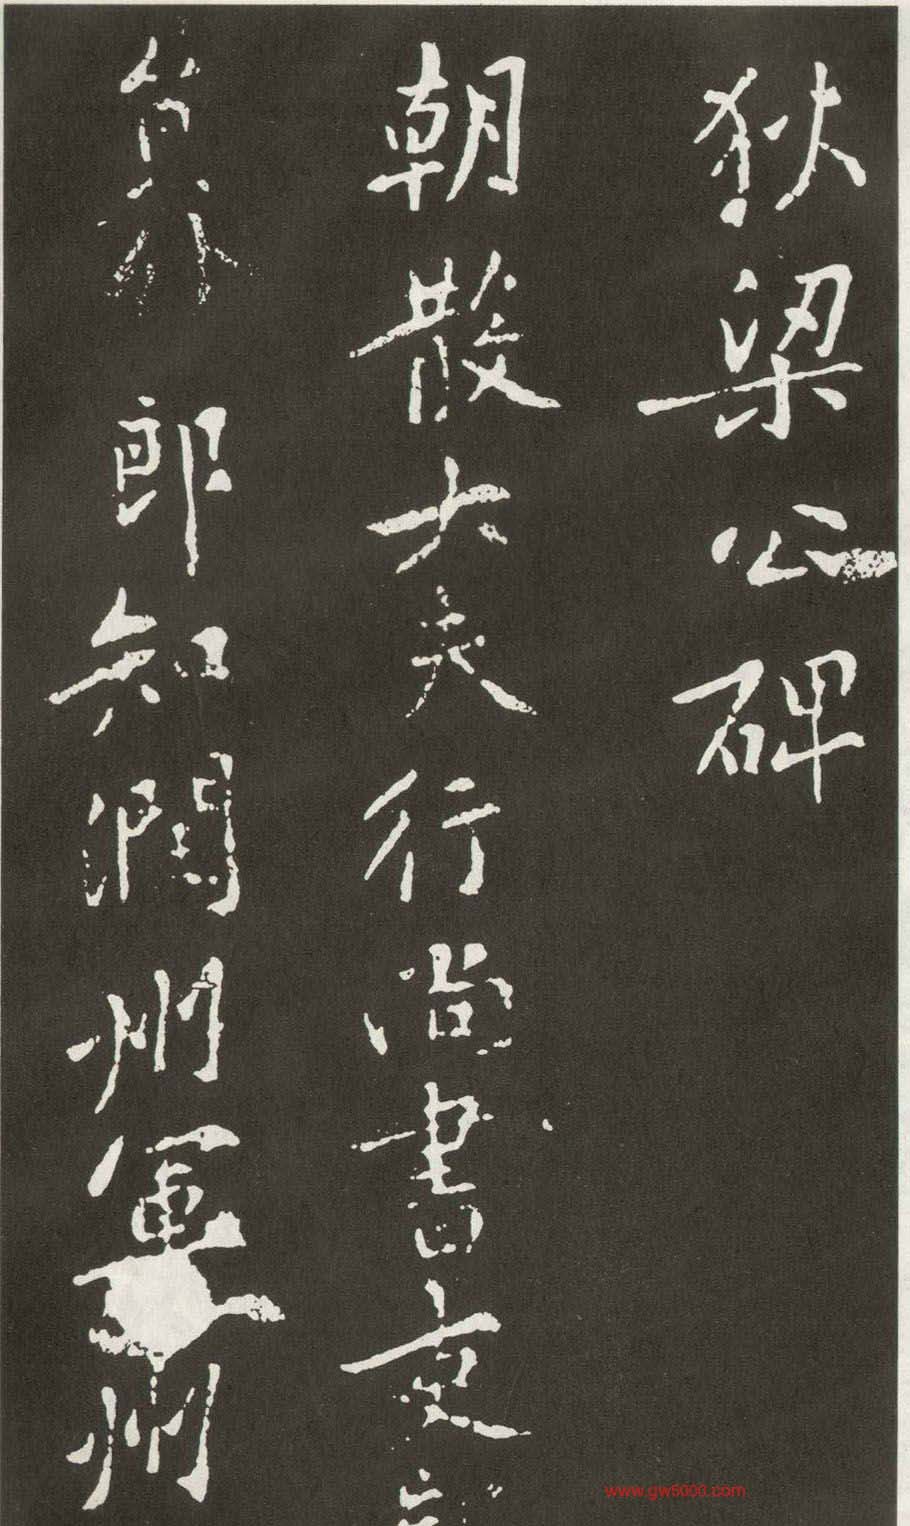 狄梁公碑
朝散大夫行尚書吏
員外郎知潤州軍州
www.gw5000.com